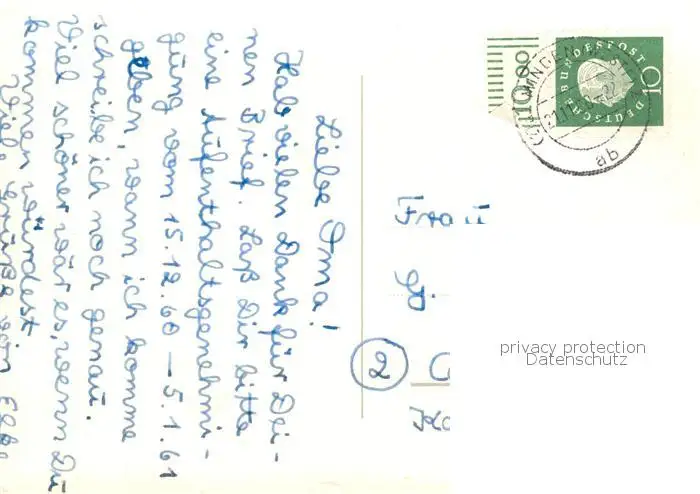 Liebe Oma!
Hab vielen Dank für Dei-
nen Brief. Laß Dir bitte
eine Aufenthaltsgenehmi-
gung vom 15.12.60 – 5.1.61
geben, wann ich komme
schreibe ich noch genau.
Viel schöner wär es, wenn Du
kommen würdest.
Viele Grüße von
Frau
2
DEUTSCHE BUNDESPOST
10
10,00
ab
privacy protection
Datenschutz